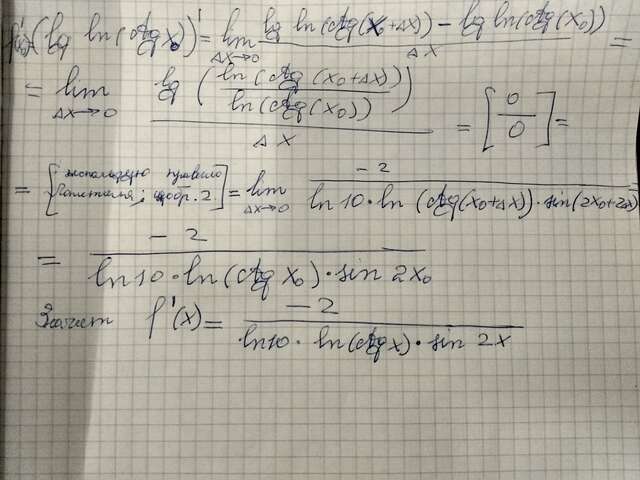 (lg ln(ctg x₀))' = lim Δx→0 (lg ln(ctg(x₀+Δx)) − lg ln(ctg(x₀))) / Δx =
= lim Δx→0 lg( ln(ctg(x₀+Δx)) / ln(ctg(x₀)) ) / Δx = [0/0] =
= [использую правило Лопиталя; 2.] = lim Δx→0 −2 / (ln 10 · ln(ctg(x₀+Δx)) · sin(2x₀+2Δx)) =
= −2 / (ln10 · ln(ctg x₀) · sin 2x₀
Значит f'(x) = −2 / (ln10 · ln(ctg x) · sin 2x